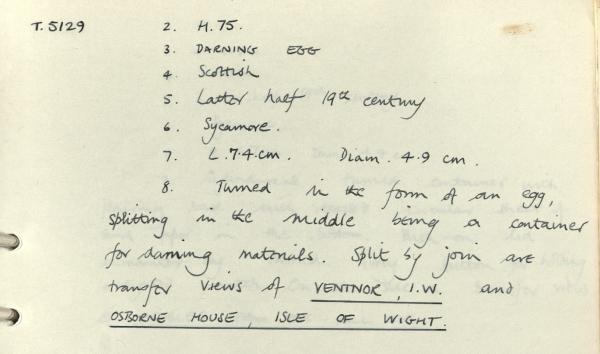 T.5129 2. H.75.
3. DARNING EGG
4. Scottish
5. Latter half 19th century
6. Sycamore.
7. L.7.4.cm. Diam. 4.9 cm.
8. Turned in the form of an egg,
splitting in the middle being a container
for darning materials. Split by join are
transfer views of VENTNOR, I.W. and
OSBORNE HOUSE, ISLE OF WIGHT.